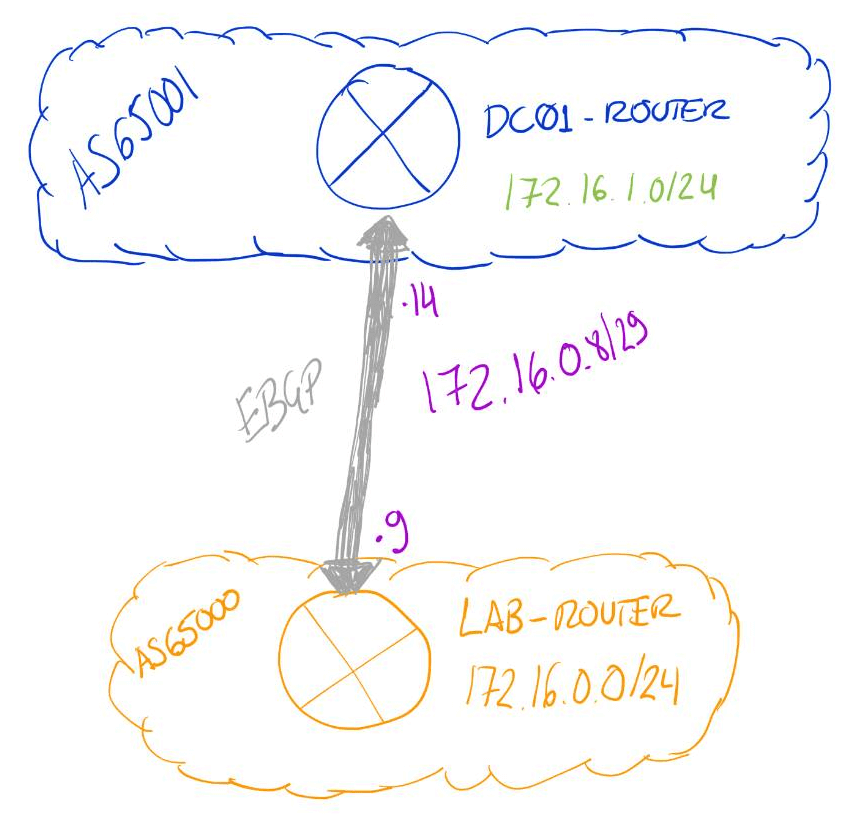 AS65001
DC01-ROUTER
172.16.1.0/24
.14
172.16.0.8/29
EBGP
.9
AS65000
LAB-ROUTER
172.16.0.0/24